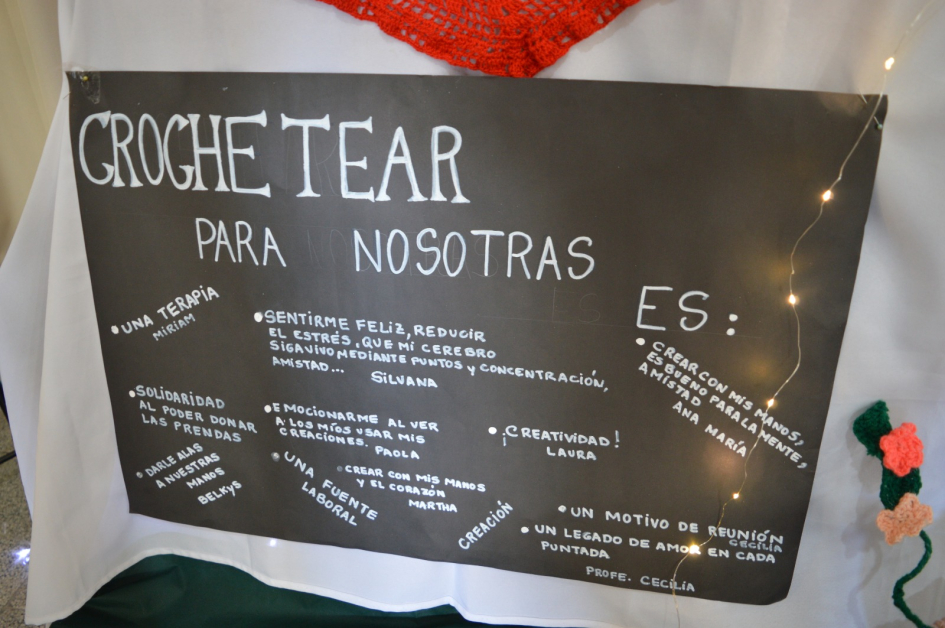 CROCHETEAR
PARA NOSOTRAS
ES:
• UNA TERAPIA
MIRIAM
• SENTIRME FELIZ, REDUCIR
EL ESTRÉS, QUE MI CEREBRO
SIGA VIVO MEDIANTE PUNTOS Y CONCENTRACIÓN,
AMISTAD...
SILVANA
• CREAR CON MIS MANOS,
ES BUENO PARA LA MENTE,
AMISTAD
ANA MARÍA
• SOLIDARIDAD
AL PODER DONAR
LAS PRENDAS
• EMOCIONARME AL VER
A LOS MÍOS USAR MIS
CREACIONES.
PAOLA
• ¡CREATIVIDAD!
LAURA
• DARLE ALAS
A NUESTRAS
MANOS
BELKYS
• UNA FUENTE
LABORAL
• CREAR CON MIS MANOS
Y EL CORAZÓN
MARTHA
CREACIÓN
• UN MOTIVO DE REUNIÓN
CECILIA
• UN LEGADO DE AMOR EN CADA
PUNTADA
PROFE. CECILIA